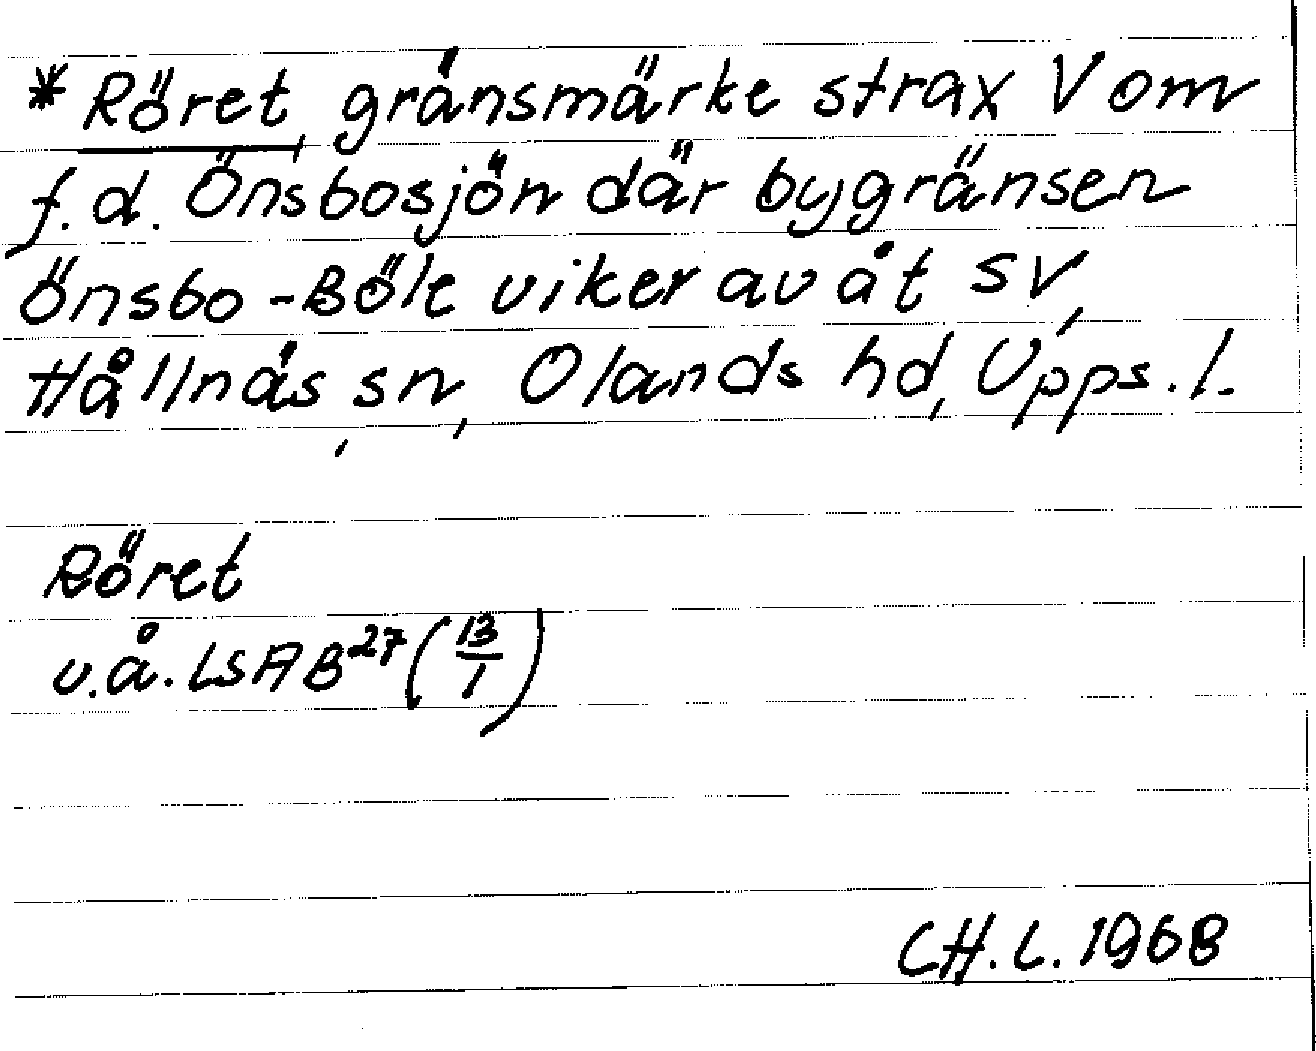 * Röret, gränsmärke strax V om
f.d. Önsbosjön där bygränsen
Önsbo-Böle viker av åt SV,
Hållnäs, sn, Olands hd, Upps.l.
Röret
u.å. LSA B²⁷ (13/1)
CH.L. 1968